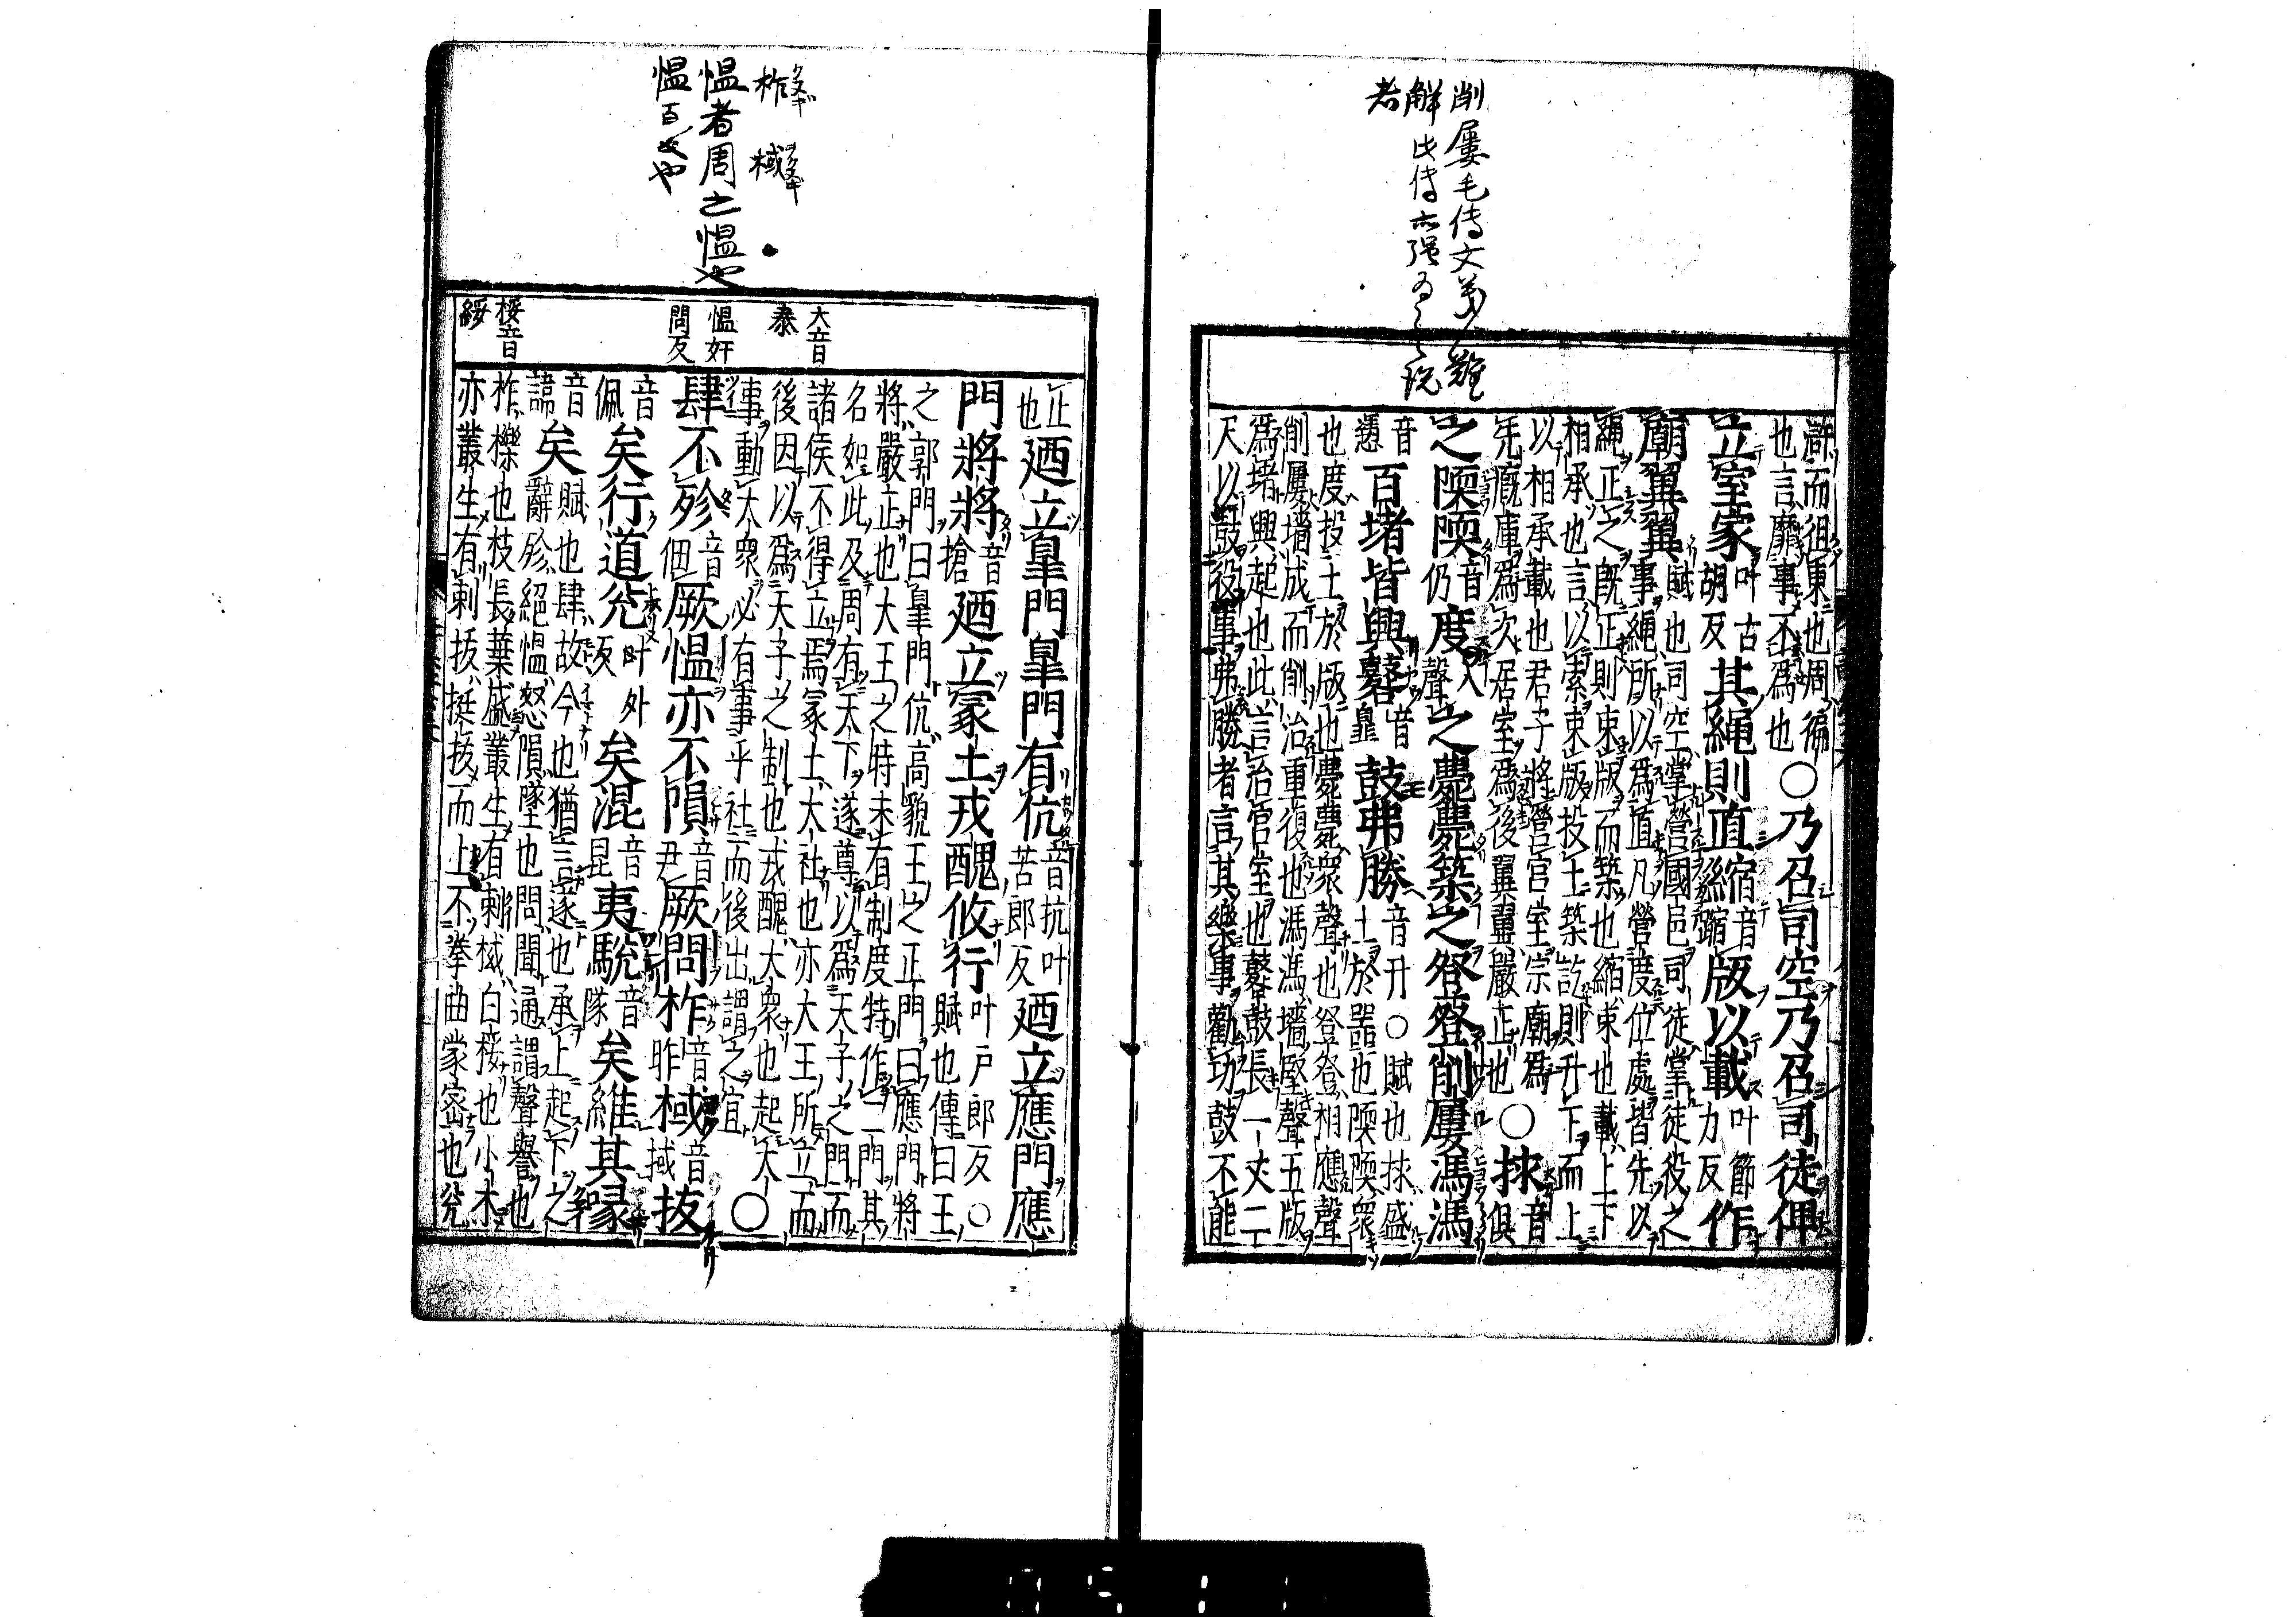 削屢毛传文義難
解此传亦强为之説
者
滸而徂東也周徧
也言靡事不爲也○乃召司空乃召司徒俾
立室家叶古胡反其繩則直縮音蹜版以載叶節力反作
廟翼翼賦也司空掌營國邑司徒掌徒役之
事繩所以爲直凡營度位處皆先以
繩正之既正則束版而築也縮束也載上下
相承也言以索束版投土築訖則升下而上
以相承載也君子將營宮室宗廟爲
先廐庫爲次居室爲後翼翼嚴正也○捄音俱
之陾陾音仍度入聲之薨薨築之登登削屢馮馮
音慿百堵皆興鼛音臯鼓弗勝音升○賦也捄盛
土於器也陾陾衆
也度投土於版也薨薨衆聲也登登相應聲
削屢墻成而削治重復也馮馮墻堅聲五版
爲堵興起也此言治宮室也鼛鼓長一丈二
尺以鼓役事弗勝者言其樂事勸功鼓不能
柞クヌギ 棫
慍者周之慍也
慍百
大音泰
慍紆問反
桵音綏
正也廼立臯門臯門有伉音抗叶苦郎反廼立應門應
門將將音搶廼立冡土戎醜攸行叶戶郎反○
賦也傳曰王
之郭門曰臯門伉高貌王之正門曰應門將
將嚴正也大王之時未有制度特作二門其
名如此及周有天下遂尊以爲天子之門而
諸侯不得立焉冡土大社也亦大王所立而
後因以爲天子之制也戎醜大衆也起大
事動大衆必有事乎社而後出謂之宜○
肆不殄音佃厥慍亦不隕音尹厥問柞音昨棫音域拔
音佩矣行道兌叶外反矣混音昆夷駾音隊矣維其喙
音諱矣賦也肆故今也猶言遂也承上起下之
辭殄絕慍怒隕墜也問聞通謂聲譽也
柞櫟也枝長葉盛叢生有刺棫白桵也小木
亦叢生有刺拔挺拔而上不拳曲蒙密也兌